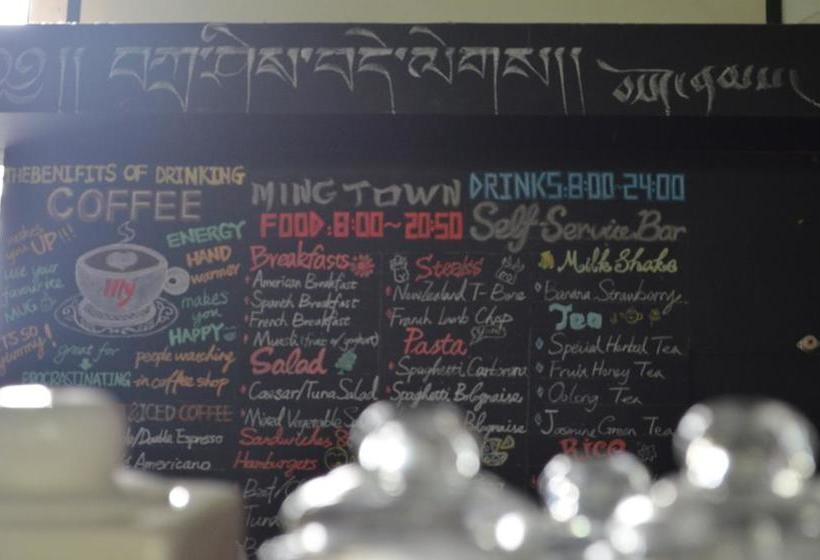 ༄༅།། བཀྲ་ཤིས་བདེ་ལེགས།།།
THE BENIFITS OF DRINKING
COFFEE
makes
you UP!!!
use your
favourite
MUG
ITS SO
yummy!
my
ENERGY
HAND
warmer
makes
you
HAPPY
great for
PROCRASTINATING
people watching
in coffee shop
ICED COFFEE
/Double Espresso
Americano
MING TOWN
FOOD:8:00~20:50
Breakfasts
American Breakfast
Spanish Breakfast
French Breakfast
Muesli (fruit or yoghurt)
Salad
Caesar/Tuna Salad
Mixed Vegetable
Sandwiches &
Hamburgers
Steaks
New Zealand T-Bone
French Lamb Chop
Pasta
Spaghetti Carbonara
Spaghetti Bolognaise
Bolognaise
DRINKS:8:00-24:00
Self-Service Bar
Milk Shake
Banana Strawberry
Tea
Special Herbal Tea
Fruit Honey Tea
Oolong Tea
Jasmine Green Tea
Rice